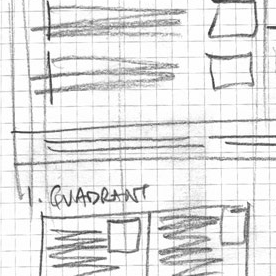 1. QUADRANT